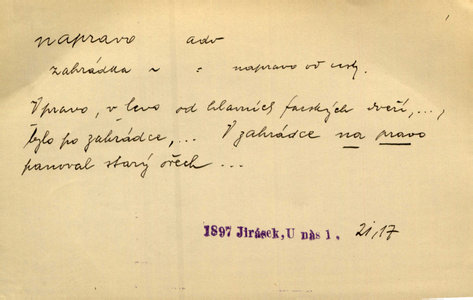 napravo adv
zahrádka ~ " napravo od cesty.
Vpravo, v levo od hlavních farských dveří, ...,
bylo po zahrádce, ... V zahrádce na pravo
panoval starý ořech ...
1897 Jirásek, U nás 1, 21, 17